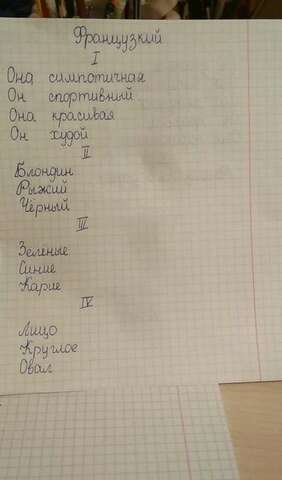 Французкий
I
Она симпотичная
Он спортивный
Она красивая
Он худой
II
Блондин
Рыжий
Чёрный
III
Зеленые
Синие
Карие
IV
Лицо
Круглое
Овал